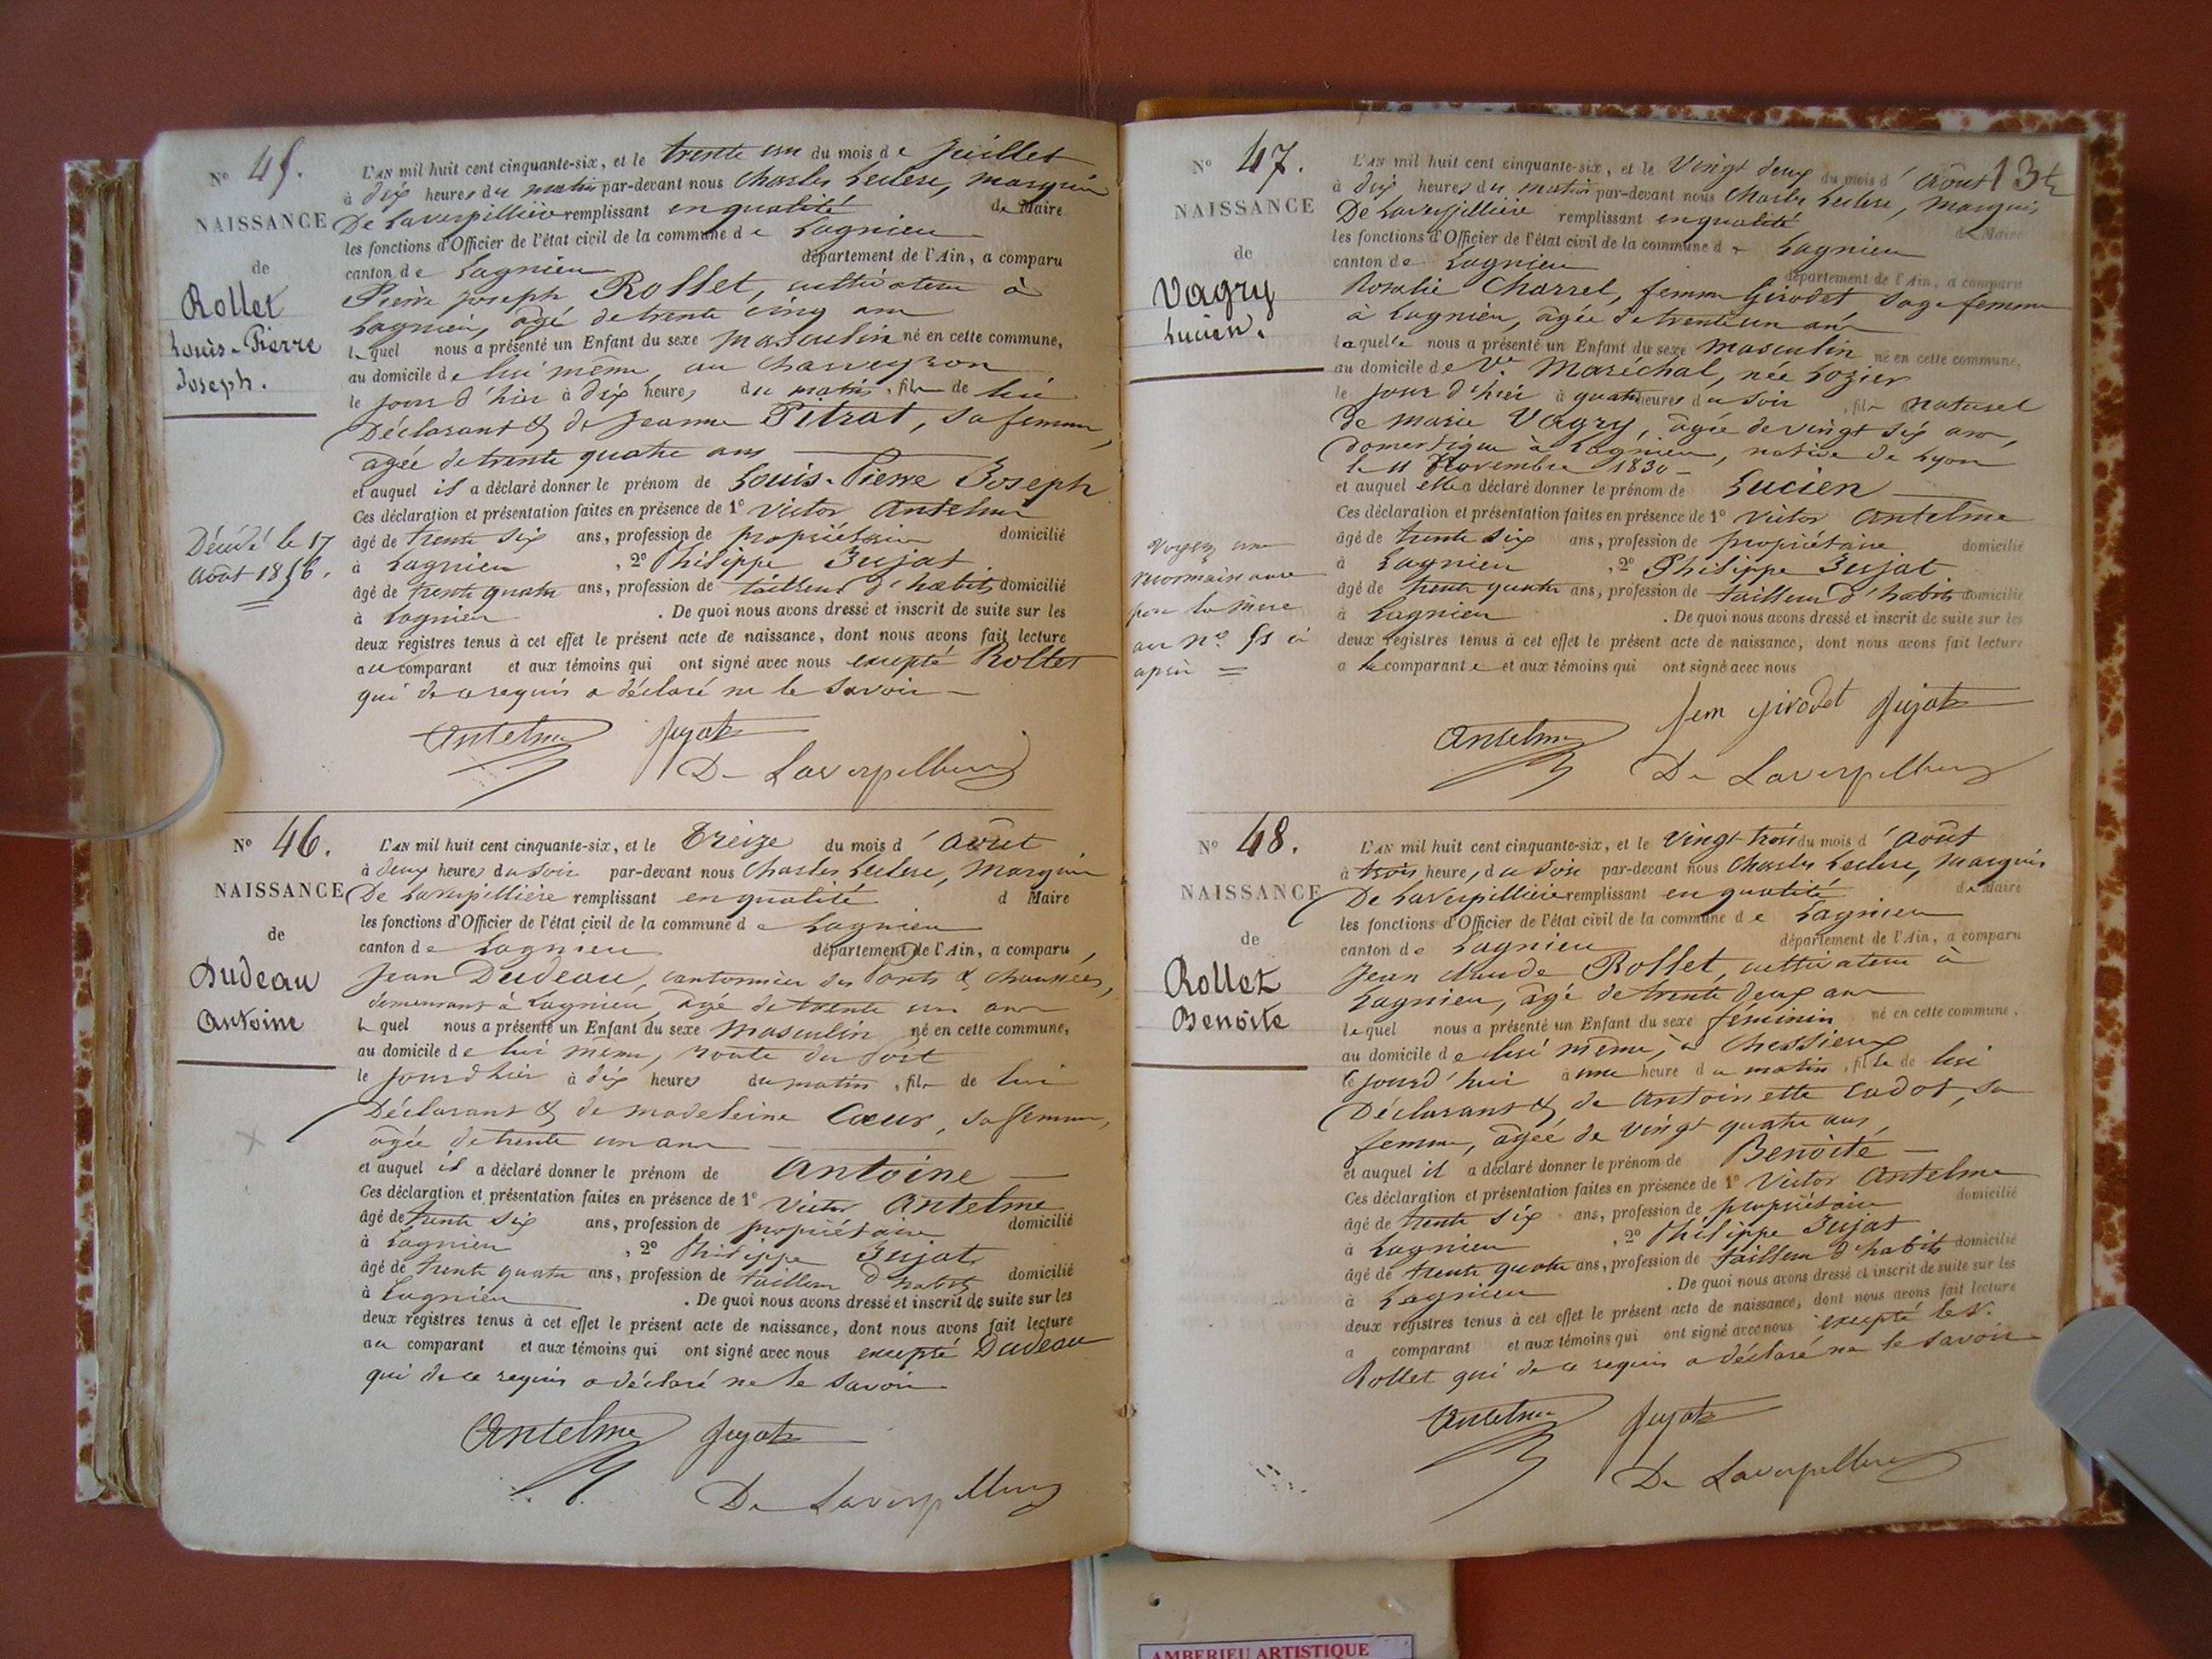 N° 45.
NAISSANCE
de
Rollet
Louis-Pierre
Joseph.
Décédé le 17
août 1856.
L'AN mil huit cent cinquante-six, et le trente un du mois de Juillet
à dix heures du matin par-devant nous Charles Leclerc, Marquis
De Laverpillière remplissant en qualité de Maire
les fonctions d'Officier de l'état civil de la commune de Lagnieu
canton de Lagnieu département de l'Ain, a comparu
Pierre joseph Rollet, cultivateur à
Lagnieu, âgé de trente cinq ans
lequel nous a présenté un Enfant du sexe masculin né en cette commune,
au domicile de lui même, au Charveyron
le jour d'hier à dix heures du matin, fils de lui
Déclarant & de Jeanne Pitrat, sa femme,
âgée de trente quatre ans
et auquel il a déclaré donner le prénom de Louis-Pierre Joseph
Ces déclaration et présentation faites en présence de 1° Victor Antelme
âgé de trente six ans, profession de propriétaire domicilié
à Lagnieu, 2° Philippe Jujat
âgé de trente quatre ans, profession de tailleur d'habits domicilié
à Lagnieu. De quoi nous avons dressé et inscrit de suite sur les
deux registres tenus à cet effet le présent acte de naissance, dont nous avons fait lecture
au comparant et aux témoins qui ont signé avec nous excepté Rollet
qui de ce requis a déclaré ne le savoir
Antelme Jujat
De Laverpilliere
N° 46.
NAISSANCE
de
Dudeau
Antoine
L'AN mil huit cent cinquante-six, et le Treize du mois d'Août
à deux heures du soir par-devant nous Charles Leclerc, Marquis
De Laverpillière remplissant en qualité d Maire
les fonctions d'Officier de l'état civil de la commune de Lagnieu
canton de Lagnieu département de l'Ain, a comparu,
Jean Dudeau, cantonnier des Ponts & chaussées,
demeurant à Lagnieu, âgé de trente un ans
lequel nous a présenté un Enfant du sexe Masculin né en cette commune,
au domicile de lui même, route du Port
le jour d'hier à dix heures du matin, fils de lui
Déclarant & de madeleine Cœur, sa femme,
âgée de trente un ans
et auquel il a déclaré donner le prénom de Antoine
Ces déclaration et présentation faites en présence de 1° Victor Antelme
âgé de trente six ans, profession de propriétaire domicilié
à Lagnieu, 2° Philippe Jujat
âgé de trente quatre ans, profession de tailleur d'habits domicilié
à Lagnieu. De quoi nous avons dressé et inscrit de suite sur les
deux registres tenus à cet effet le présent acte de naissance, dont nous avons fait lecture
au comparant et aux témoins qui ont signé avec nous excepté Dudeau
qui de ce requis a déclaré ne le savoir
Antelme Jujat
De Laverpilliere
N° 47.
NAISSANCE
de
Vagry
Lucien.
Voyez une
reconnaissance
par la mère
au N° 51 ci
après =
L'AN mil huit cent cinquante-six, et le Vingt deux du mois d'Août
à dix heures du matin par-devant nous Charles Leclerc, Marquis
De Laverpillière remplissant en qualité de Maire
les fonctions d'Officier de l'état civil de la commune de Lagnieu
canton de Lagnieu département de l'Ain, a comparu
Rosalie Charrel, femme Girodet, sage femme
à Lagnieu, âgée de trente un ans
laquelle nous a présenté un Enfant du sexe masculin né en cette commune,
au domicile de Ve. Maréchal, née Lozier
le jour d'hier à quatre heures du soir, fils naturel
de marie Vagry, âgée de vingt six ans,
domestique à Lagnieu, native de Lyon
le 11 Novembre 1830
et auquel elle a déclaré donner le prénom de Lucien
Ces déclaration et présentation faites en présence de 1° Victor Antelme
âgé de trente six ans, profession de propriétaire domicilié
à Lagnieu, 2° Philippe Jujat
âgé de trente quatre ans, profession de tailleur d'habits domicilié
à Lagnieu. De quoi nous avons dressé et inscrit de suite sur les
deux registres tenus à cet effet le présent acte de naissance, dont nous avons fait lecture
a la comparante et aux témoins qui ont signé avec nous
fem girodet Jujat
Antelme
De Laverpilliere
N° 48.
NAISSANCE
de
Rollet
Benoite
L'AN mil huit cent cinquante-six, et le Vingt-trois du mois d'Août
à trois heures du soir par-devant nous Charles Leclerc, Marquis
De Laverpillière remplissant en qualité de Maire
les fonctions d'Officier de l'état civil de la commune de Lagnieu
canton de Lagnieu département de l'Ain, a comparu
Jean claude Rollet, cultivateur à
Lagnieu, âgé de trente deux ans
lequel nous a présenté un Enfant du sexe féminin né en cette commune,
au domicile de lui même, à Chessieux
le jourd'hui à une heure du matin, fille de lui
Déclarant & de Antoinette Cadot, sa
femme, âgée de vingt quatre ans,
et auquel il a déclaré donner le prénom de Benoîte
Ces déclaration et présentation faites en présence de 1° Victor Antelme
âgé de trente six ans, profession de propriétaire domicilié
à Lagnieu, 2° Philippe Jujat
âgé de trente quatre ans, profession de tailleur d'habits domicilié
à Lagnieu. De quoi nous avons dressé et inscrit de suite sur les
deux registres tenus à cet effet le présent acte de naissance, dont nous avons fait lecture
a comparant et aux témoins qui ont signé avec nous excepté le s.
Rollet qui de ce requis a déclaré ne le savoir
Antelme Jujat
De Laverpilliere
AMBERIEU ARTISTIQUE